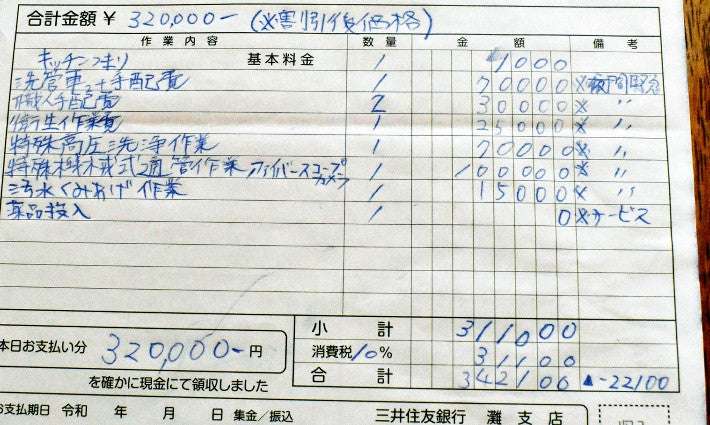 合計金額 ¥ 320,000- (※割引後価格)
作業内容 数量 金額 備考
キッチンつまり 基本料金 1 1000
洗管車 手配費 1 70000 ※夜間緊急
職人手配費 2 30000 ※ 〃
衛生作業費 1 25000 ※ 〃
特殊高圧洗浄作業 1 70000 ※ 〃
特殊機械式通管作業 ファイバースコープカメラ 1 100000 ※ 〃
汚水くみあげ作業 1 15000 ※ 〃
薬品投入 1 0 ※サービス
小計 311000
本日お支払い分 320,000- 円
消費税 10% 31100
合計 342100 ▲-22100
を確かに現金にて領収しました
お支払期日 令和 年 月 日 集金/振込 三井住友銀行 灘支店